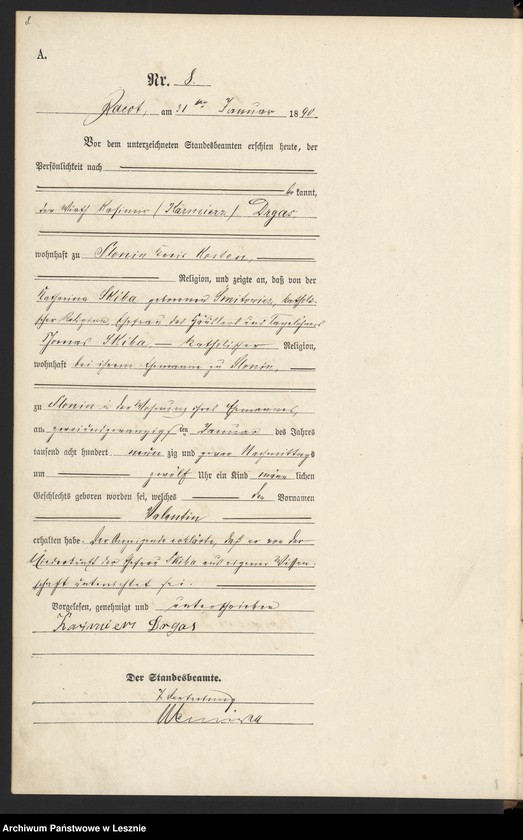 8
A.
Nr. 8.
Racot, am 31 ten Januar 1890.
Vor dem unterzeichneten Standesbeamten erschien heute, der
Persönlichkeit nach
be kannt,
der Wirth Kasimir (Kazmierz) Drgas
wohnhaft zu Slonin Kreis Kosten,
Religion, und zeigte an, daß von der
Katharina Skiba geborenen katholi-
scher Religion, Ehefrau des Häuslers und Tagelöhners
Thomas Skiba, katholischer Religion,
wohnhaft bei ihrem Ehemanne zu Slonin,
zu Slonin in der Wohnung ihres Ehemannes,
am zweiundzwanzigsten Januar des Jahres
tausend acht hundert neun zig und zwar Nachmittags
um zwölf Uhr ein Kind männ lichen
Geschlechts geboren worden sei, welches den Vornamen
Valentin
erhalten habe. Der Anzeigende erklärte, daß er von der
Niederkunft der Ehefrau Skiba aus eigener Wissen-
schaft unterrichtet sei.
Vorgelesen, genehmigt und unterschrieben
Drgas
Der Standesbeamte.
In Vertretung
Archiwum Państwowe w Lesznie